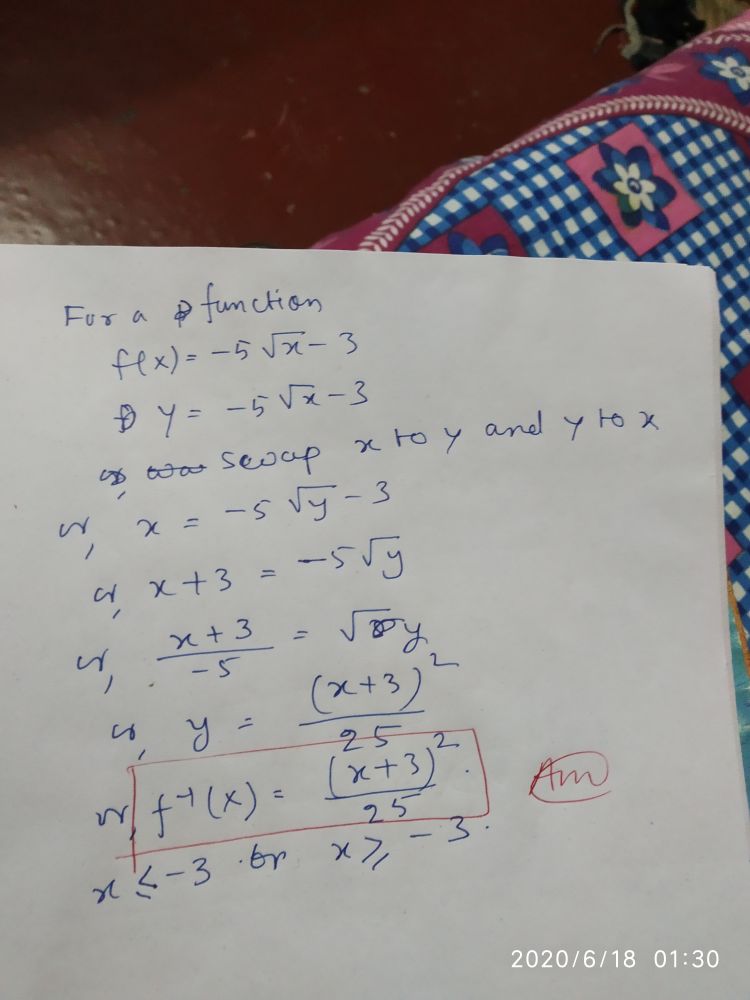 For a function
f(x) = -5 √x - 3
y = -5 √x - 3
swap x to y and y to x
or, x = -5 √y - 3
or, x + 3 = -5 √y
or, x + 3 / -5 = √y
or, y = (x+3)² / 25
or, f⁻¹(x) = (x+3)² / 25 .
Ans
x ≤ -3 or x ≥ -3.
2020/6/18 01:30